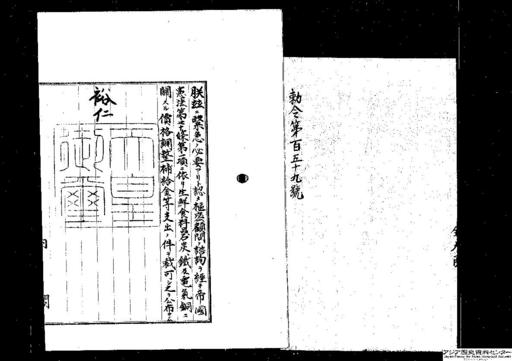 勅令第百五十九號
朕玆ニ緊急ノ必要アリト認メ樞密顧問ノ諮詢ヲ經テ帝國
憲法第七十條第一項ニ依リ生鮮食料品石炭鐵及電氣銅ニ
關スル價格調整補給金等支出ノ件ヲ裁可シ之ヲ公布セシム
裕仁
天皇
御璽
内閣
アジア歴史資料センター